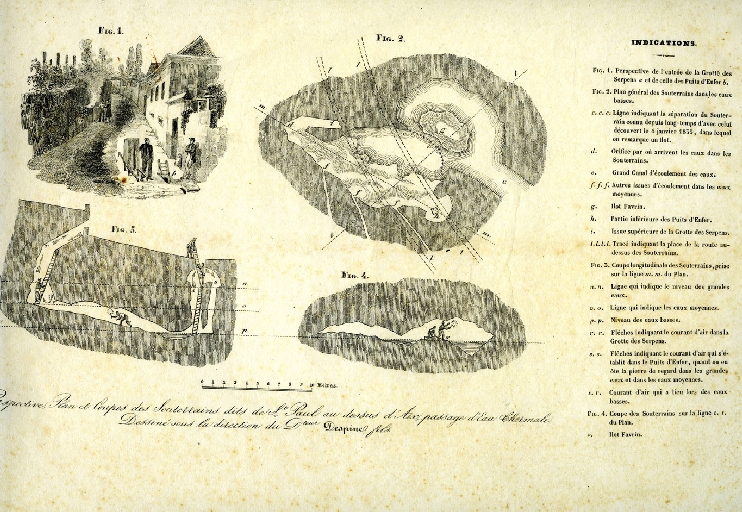 FIG. 1.
FIG. 2.
FIG. 3.
FIG. 4.
m
i
e
n
o
p
0 1 2 3 4 5 6 7 8 9 10 Mètres.
Perspective, Plan et Coupes des Souterrains dits de St. Paul au dessus d'Aix, passage d'Eau Thermale.
Dessiné sous la direction du Dteur Despine fils.
INDICATIONS.
FIG. 1. Perspective de l'entrée de la Grotte des
Serpens a et de celle des Puits d'Enfer b.
FIG. 2. Plan général des Souterrains dans les eaux
basses.
c. c. c. Ligne indiquant la séparation du Souter-
rain connu depuis long-temps d'avec celui
découvert le 4 janvier 1835, dans lequel
on remarque un îlot.
d. Orifice par où arrivent les eaux dans les
Souterrains.
e. Grand Canal d'écoulement des eaux.
f. f. f. Autres issues d'écoulement dans les eaux
moyennes.
g. Ilot Favrin.
h. Partie inférieure des Puits d'Enfer.
i. Issue supérieure de la Grotte des Serpens.
l. l. l. l. Tracé indiquant la place de la route au-
dessus des Souterrains.
FIG. 3. Coupe longitudinale des Souterrains, prise
sur la ligne m. m. du Plan.
n. n. Ligne qui indique le niveau des grandes
eaux.
o. o. Ligne qui indique les eaux moyennes.
p. p. Niveau des eaux basses.
r. r. Flèches indiquant le courant d'air dans la
Grotte des Serpens.
s. s. Flèches indiquant le courant d'air qui s'é-
tablit dans le Puits d'Enfer, quand on en
ôte la pierre de regard dans les grandes
eaux et dans les eaux moyennes.
t. t. Courant d'air qui a lieu lors des eaux
basses.
FIG. 4. Coupe des Souterrains sur la ligne
du Plan.
v. Ilot Favrin.